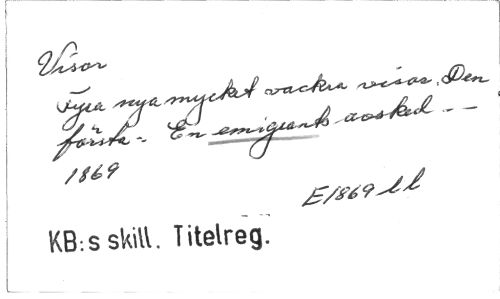 Visor
Fyra nya mycket vackra visor. Den
första:- En emigrants avsked - -
1869
E1869 ll
KB:s skill. Titelreg.